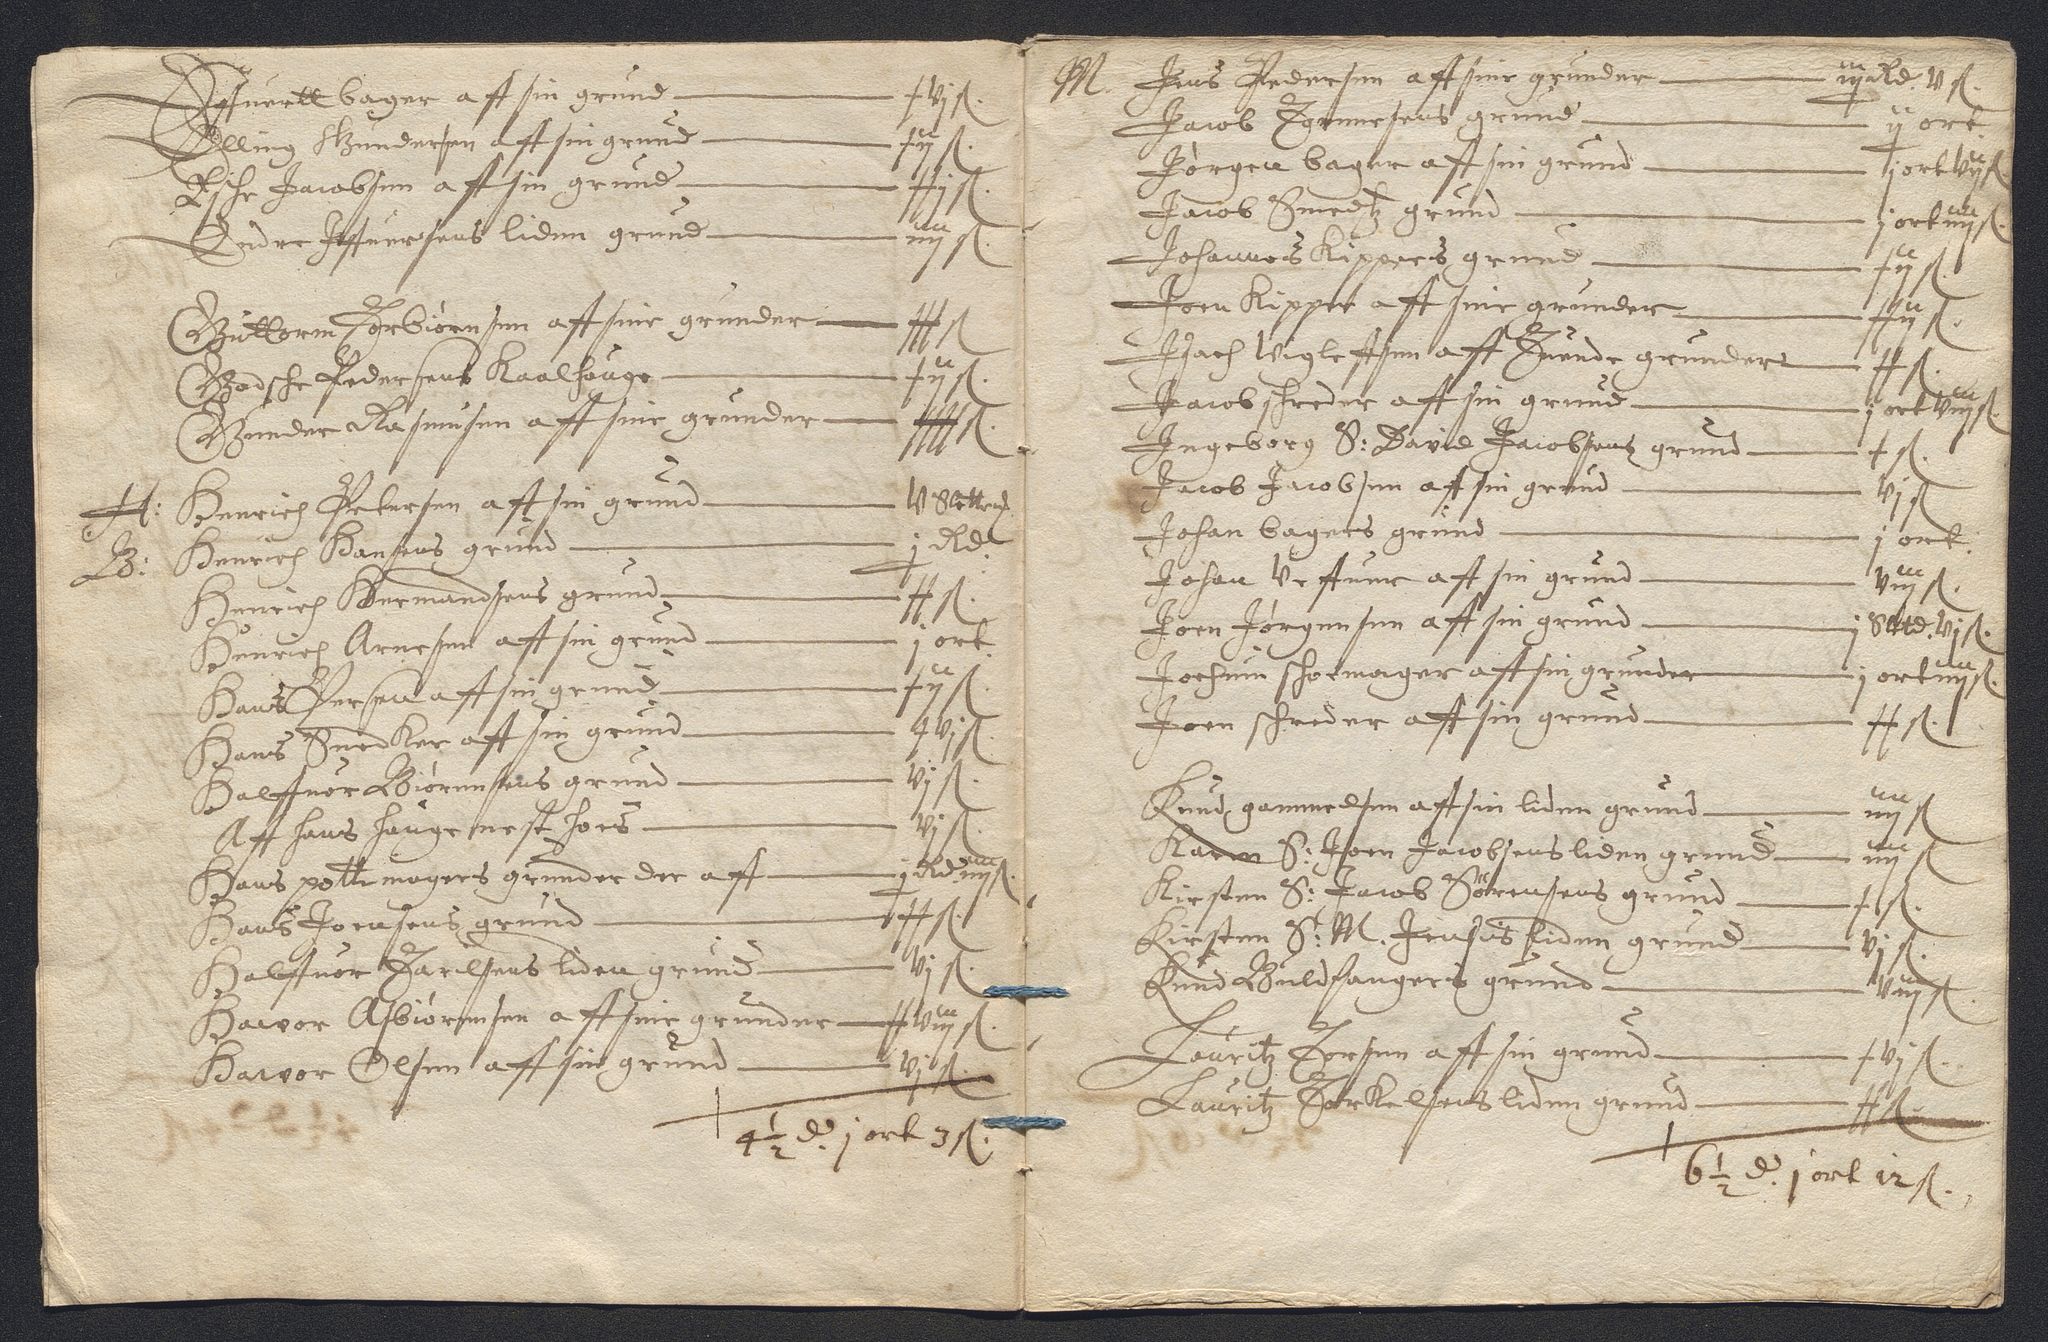 Effuertt bager aff sin grund — xvj ß.
Elling Gundersen aff sin grund — xij ß.
Esche Jacobsen aff sin grund — xxij ß.
Endre Iffuersens liden grund — iiij ß.
Guttorm Torbiørnsen aff sine grunder — xxx ß
Godsche Pedersens Kaalhauge — xij ß.
Gunder Rasmusen aff sine grunder — xxxx ß.
H: Henrich Petersen aff sin grund — v Slettemk
B: Henrich Hansens grund — j Rd.
Henrich Hermandsens grund — xx ß.
Henrich Arnesen aff sin grund — j ort.
Hans Persen aff sin grund — xij ß.
Hans Snedker aff sin grund — xvj ß.
Halffuor Biørnsens grund — vj ß.
Aff hans hauge nest hoes — vj ß.
Hans pottemagers grunder der aff — j Rd. iiij ß.
Hans Joensens grund — xx ß.
Halffuor Tarilsens liden grund — vj ß.
Haвvor Asbiørnsen aff sine grunder — xx viij ß.
Hacvor Olsen aff sin grund — vj ß.
4½ d. j ort 3 ß.
M. Jens Pedersen aff sine grunder — iij Rd. v ß.
Jacob Tommesens grund — ij ort.
Jørgen bager aff sin grund — j ort vij ß.
Jacob Smedtz grund — j ort iiij ß.
Johannes Kippers grund — xij ß.
Joen Kipper aff sine grunder — xxij ß.
Isach Vigleffsen aff Tuende grunder — xx ß.
Jacob schreder aff sin grund — j ort viij ß.
Ingeborg S: David Jacobsens grund — x ß.
Jacob Jacobsen aff sin grund — vj ß
Johan bagers grund — j ort.
Johan Veffuer aff sin grund — viij ß.
Joen Jørgensen aff sin grund — j Sltd. vj ß.
Jochum schomager aff sin grunder — j ort iiij ß.
Joen schreder aff sin grund — xx ß.
Knud gammelsen aff sin liden grund — iiij ß
Karen S: Joen Jacobsens liden grund — iiij ß
Kirsten S: Jacob Sørensens grund — x ß.
Kirsten S: M. Jensis liden grund — vj ß.
Knud Guldfangers grund — viij ß.
Lauritz Torsen aff sin grund — xvj ß.
Lauritz Torkelsens liden grund — xx ß.
6½ d. j ort 12 ß.